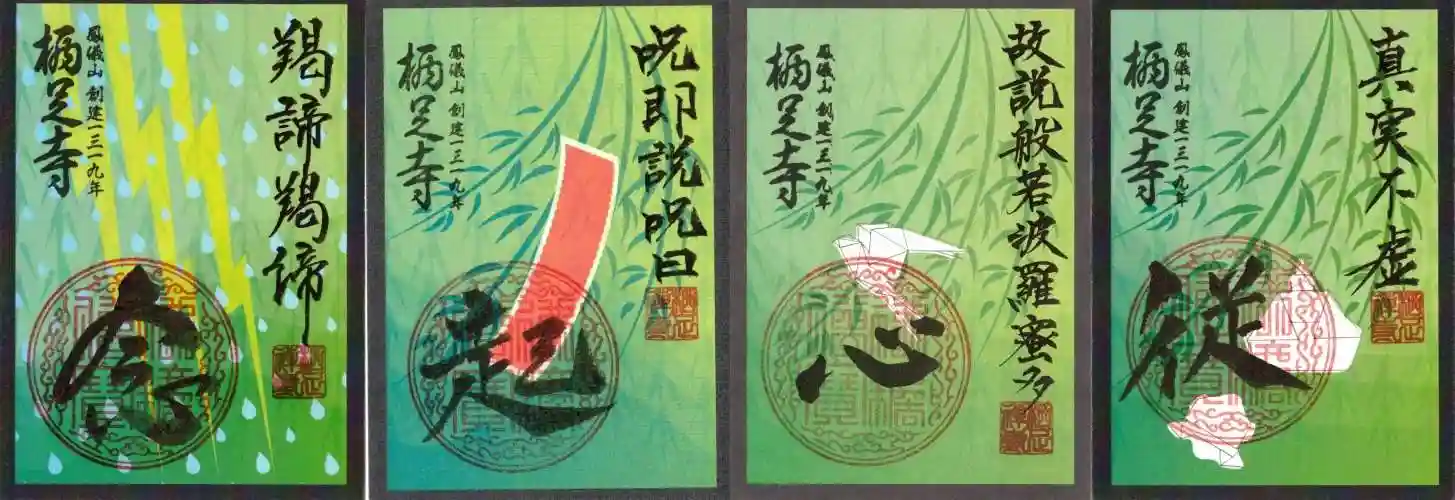 真実不虚
鳳儀山 創建一三一九年
栖足寺
従
故説般若波羅蜜多
鳳儀山 創建一三一九年
栖足寺
心
呪即説呪曰
鳳儀山 創建一三一九年
栖足寺
起
羯諦羯諦
鳳儀山 創建一三一九年
栖足寺
念